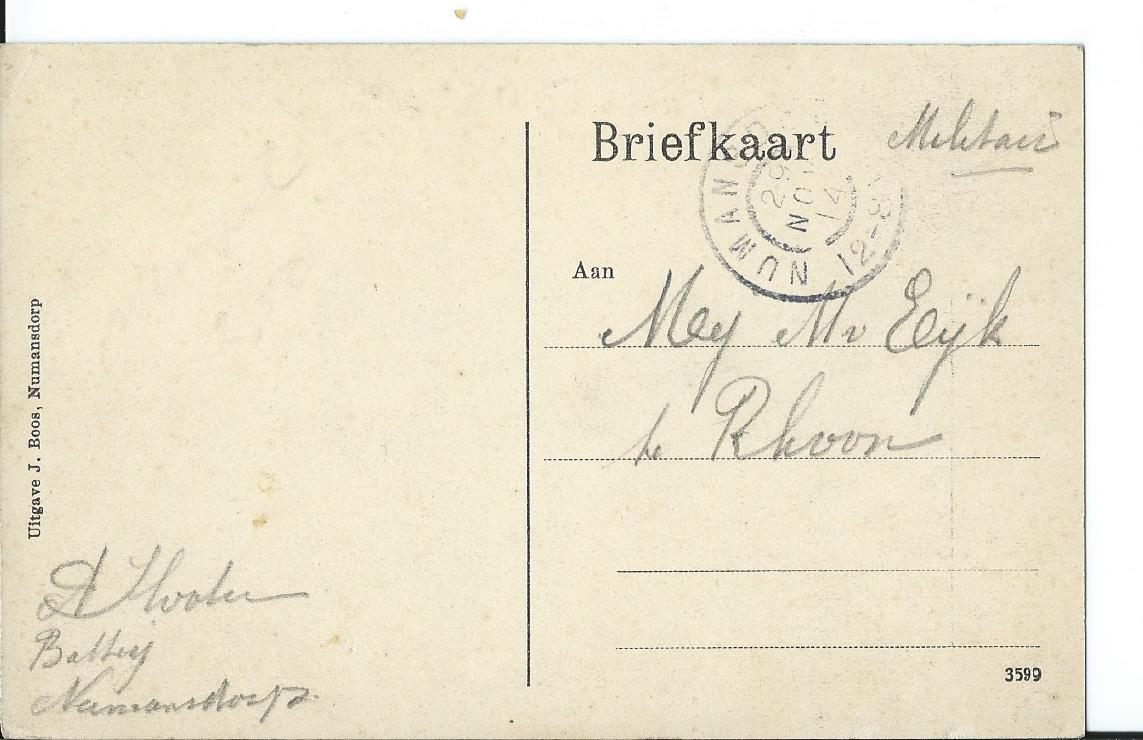 Briefkaart
Militair
NUMANSD
29 NOV 14
12-8
Aan
Mej M v Eijk
te Rhoon
Uitgave J. Boos, Numansdorp
Battrij
Numansdorp
3599